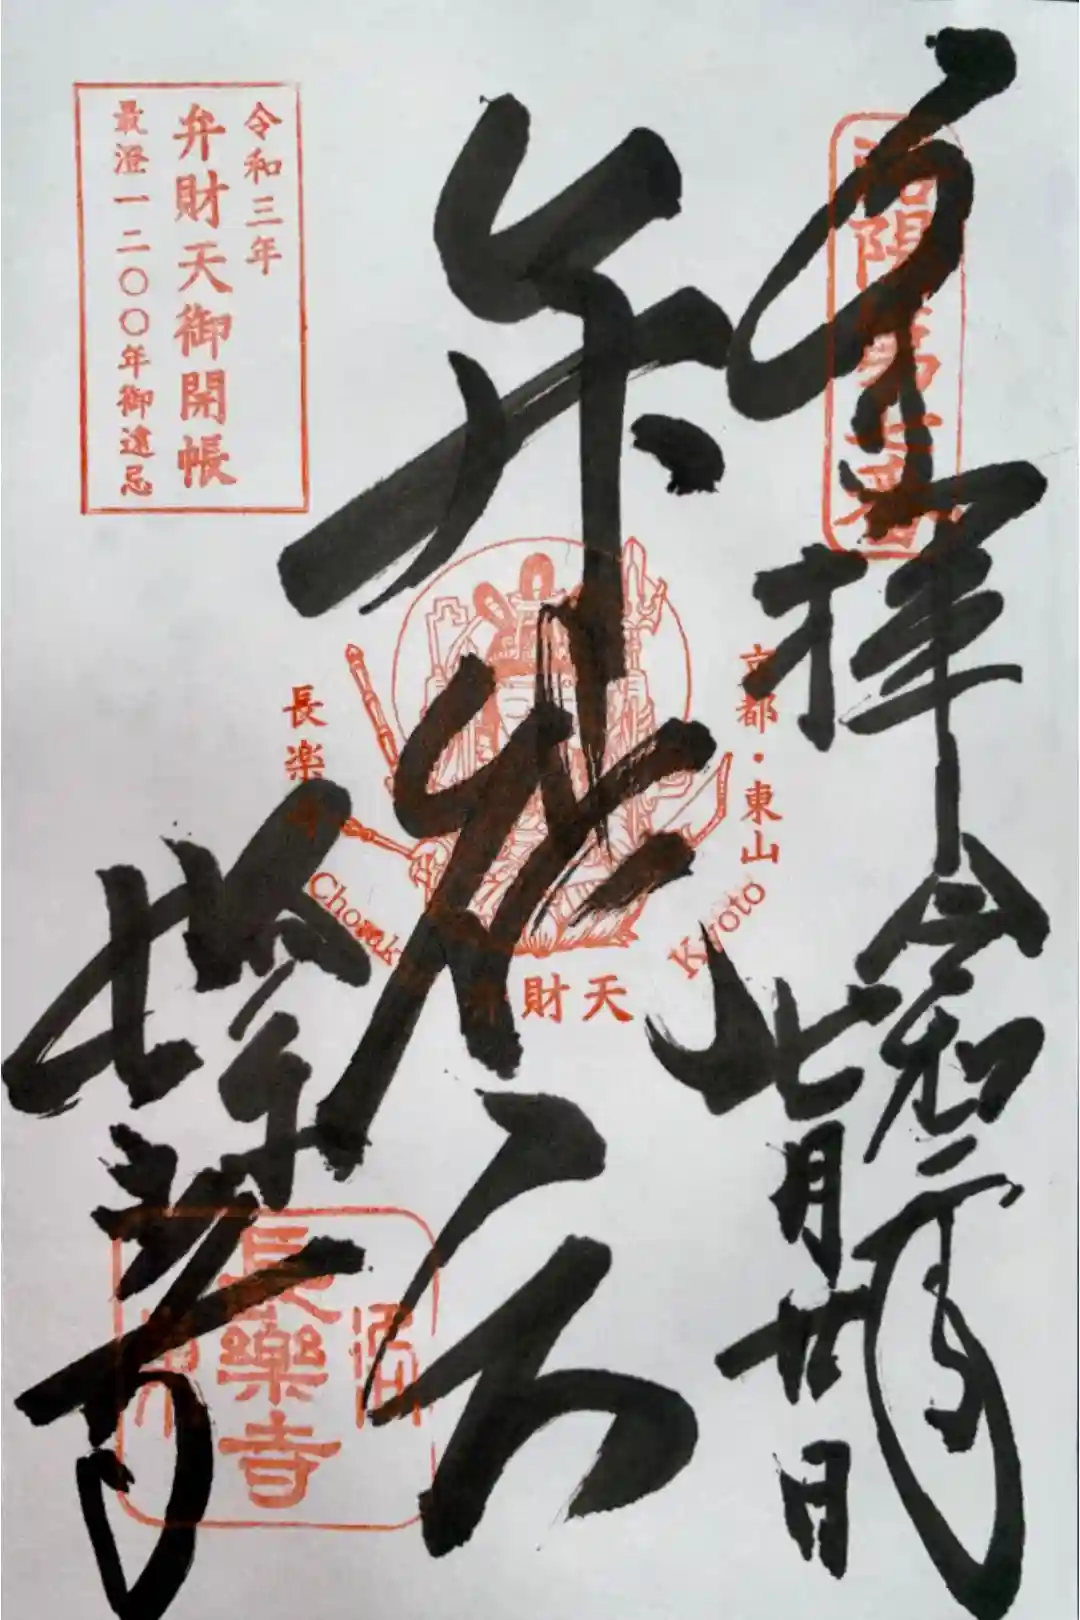 奉拝
令和三年
七月廿日
弁財天
長楽寺
令和三年
弁財天御開帳
最澄一二〇〇年御遠忌
洛陽第七番
京都・東山
Kyoto
長楽寺
財天
長樂寺